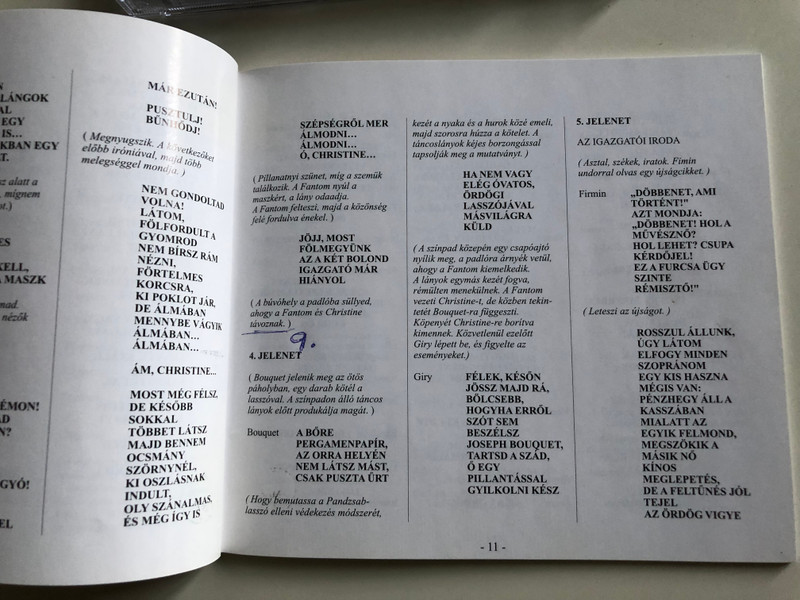 LÁNGOK
EGY
IS...
KBAN EGY
T.
sz alatt a
mígnem
ot.)
ES
KELL,
A MASZK
nad.
nézők
ÉMON!
AD
N?
GYÓ!
EL
MÁR EZUTÁN!
PUSZTULJ!
BŰNHŐDJ!
( Megnyugszik. A következőket
előbb iróniával, majd több
melegséggel mondja. )
NEM GONDOLTAD
VOLNA!
LÁTOM,
FÖLFORDULT A
GYOMROD
NEM BÍRSZ RÁM
NÉZNI,
FÖRTELMES
KORCSRA,
KI POKLOT JÁR,
DE ÁLMÁBAN
MENNYBE VÁGYIK
ÁLMÁBAN...
ÁLMÁBAN...
ÁM, CHRISTINE...
MOST MÉG FÉLSZ
DE KÉSŐBB
SOKKAL
TÖBBET LÁTSZ
MAJD BENNEM
OCSMÁNY
SZÖRNYNÉL,
KI OSZLÁSNAK
INDULT,
OLY SZÁNALMAS,
ÉS MÉG ÍGY IS
SZÉPSÉGRŐL MER
ÁLMODNI...
ÁLMODNI...
Ó, CHRISTINE...
( Pillanatnyi szünet, míg a szemük
találkozik. A Fantom nyúl a
maszkért, a lány odaadja.
A Fantom felteszi, majd a közönség
felé fordulva énekel. )
JÖJJ, MOST
FÖLMEGYÜNK
AZ A KÉT BOLOND
IGAZGATÓ MÁR
HIÁNYOL
( A búvóhely a padlóba süllyed,
ahogy a Fantom és Christine
távoznak. )
9.
4. JELENET
( Bouquet jelenik meg az ötös
páholyban, egy darab kötél a
lasszóval. A színpadon álló táncos
lányok előtt produkálja magát. )
Bouquet A BŐRE
PERGAMENPAPÍR,
AZ ORRA HELYÉN
NEM LÁTSZ MÁST,
CSAK PUSZTA ŰRT
(Hogy bemutassa a Pandzsab-
lasszó elleni védekezés módszerét,
kezét a nyaka és a hurok közé emeli,
majd szorosra húzza a kötelet. A
táncoslányok kéjes borzongással
tapsolják meg a mutatványt. )
HA NEM VAGY
ELÉG ÓVATOS,
ÖRDÖGI
LASSZÓJÁVAL
MÁSVILÁGRA
KÜLD
( A színpad közepén egy csapóajtó
nyílik meg, a padlóra árnyék vetül,
ahogy a Fantom kiemelkedik.
A lányok egymás kezét fogva,
rémülten menekülnek. A Fantom
vezeti Christine-t, de közben tekin-
tetét Bouquet-ra függeszti.
Köpenyét Christine-re borítva
kimennek. Közvetlenül ezelőtt
Giry lépett be, és figyelte az
eseményeket.)
Giry FÉLEK, KÉSŐN
JÖSSZ MAJD RÁ,
BÖLCSEBB,
HOGYHA ERRŐL
SZÓT SEM
BESZÉLSZ
JOSEPH BOUQUET,
TARTSD A SZÁD,
Ő EGY
PILLANTÁSSAL
GYILKOLNI KÉSZ
5. JELENET
AZ IGAZGATÓI IRODA
( Asztal, székek, iratok. Fimin
undorral olvas egy újságcikket. )
Firmin „DÖBBENET, AMI
TÖRTÉNT!"
AZT MONDJA:
„DÖBBENET! HOL A
MŰVÉSZNŐ?
HOL LEHET? CSUPA
KÉRDŐJEL!
EZ A FURCSA ÜGY
SZINTE
RÉMISZTŐ!"
( Leteszi az újságot. )
ROSSZUL ÁLLUNK,
ÚGY LÁTOM
ELFOGY MINDEN
SZOPRÁNOM
EGY KIS HASZNA
MÉGIS VAN:
PÉNZHEGY ÁLL A
KASSZÁBAN
MIALATT AZ
EGYIK FELMOND,
MEGSZÖKIK A
MÁSIK NŐ
KÍNOS
MEGLEPETÉS,
DE A FELTŰNÉS JÓL
TEJEL
AZ ÖRDÖG VIGYE
- 11 -